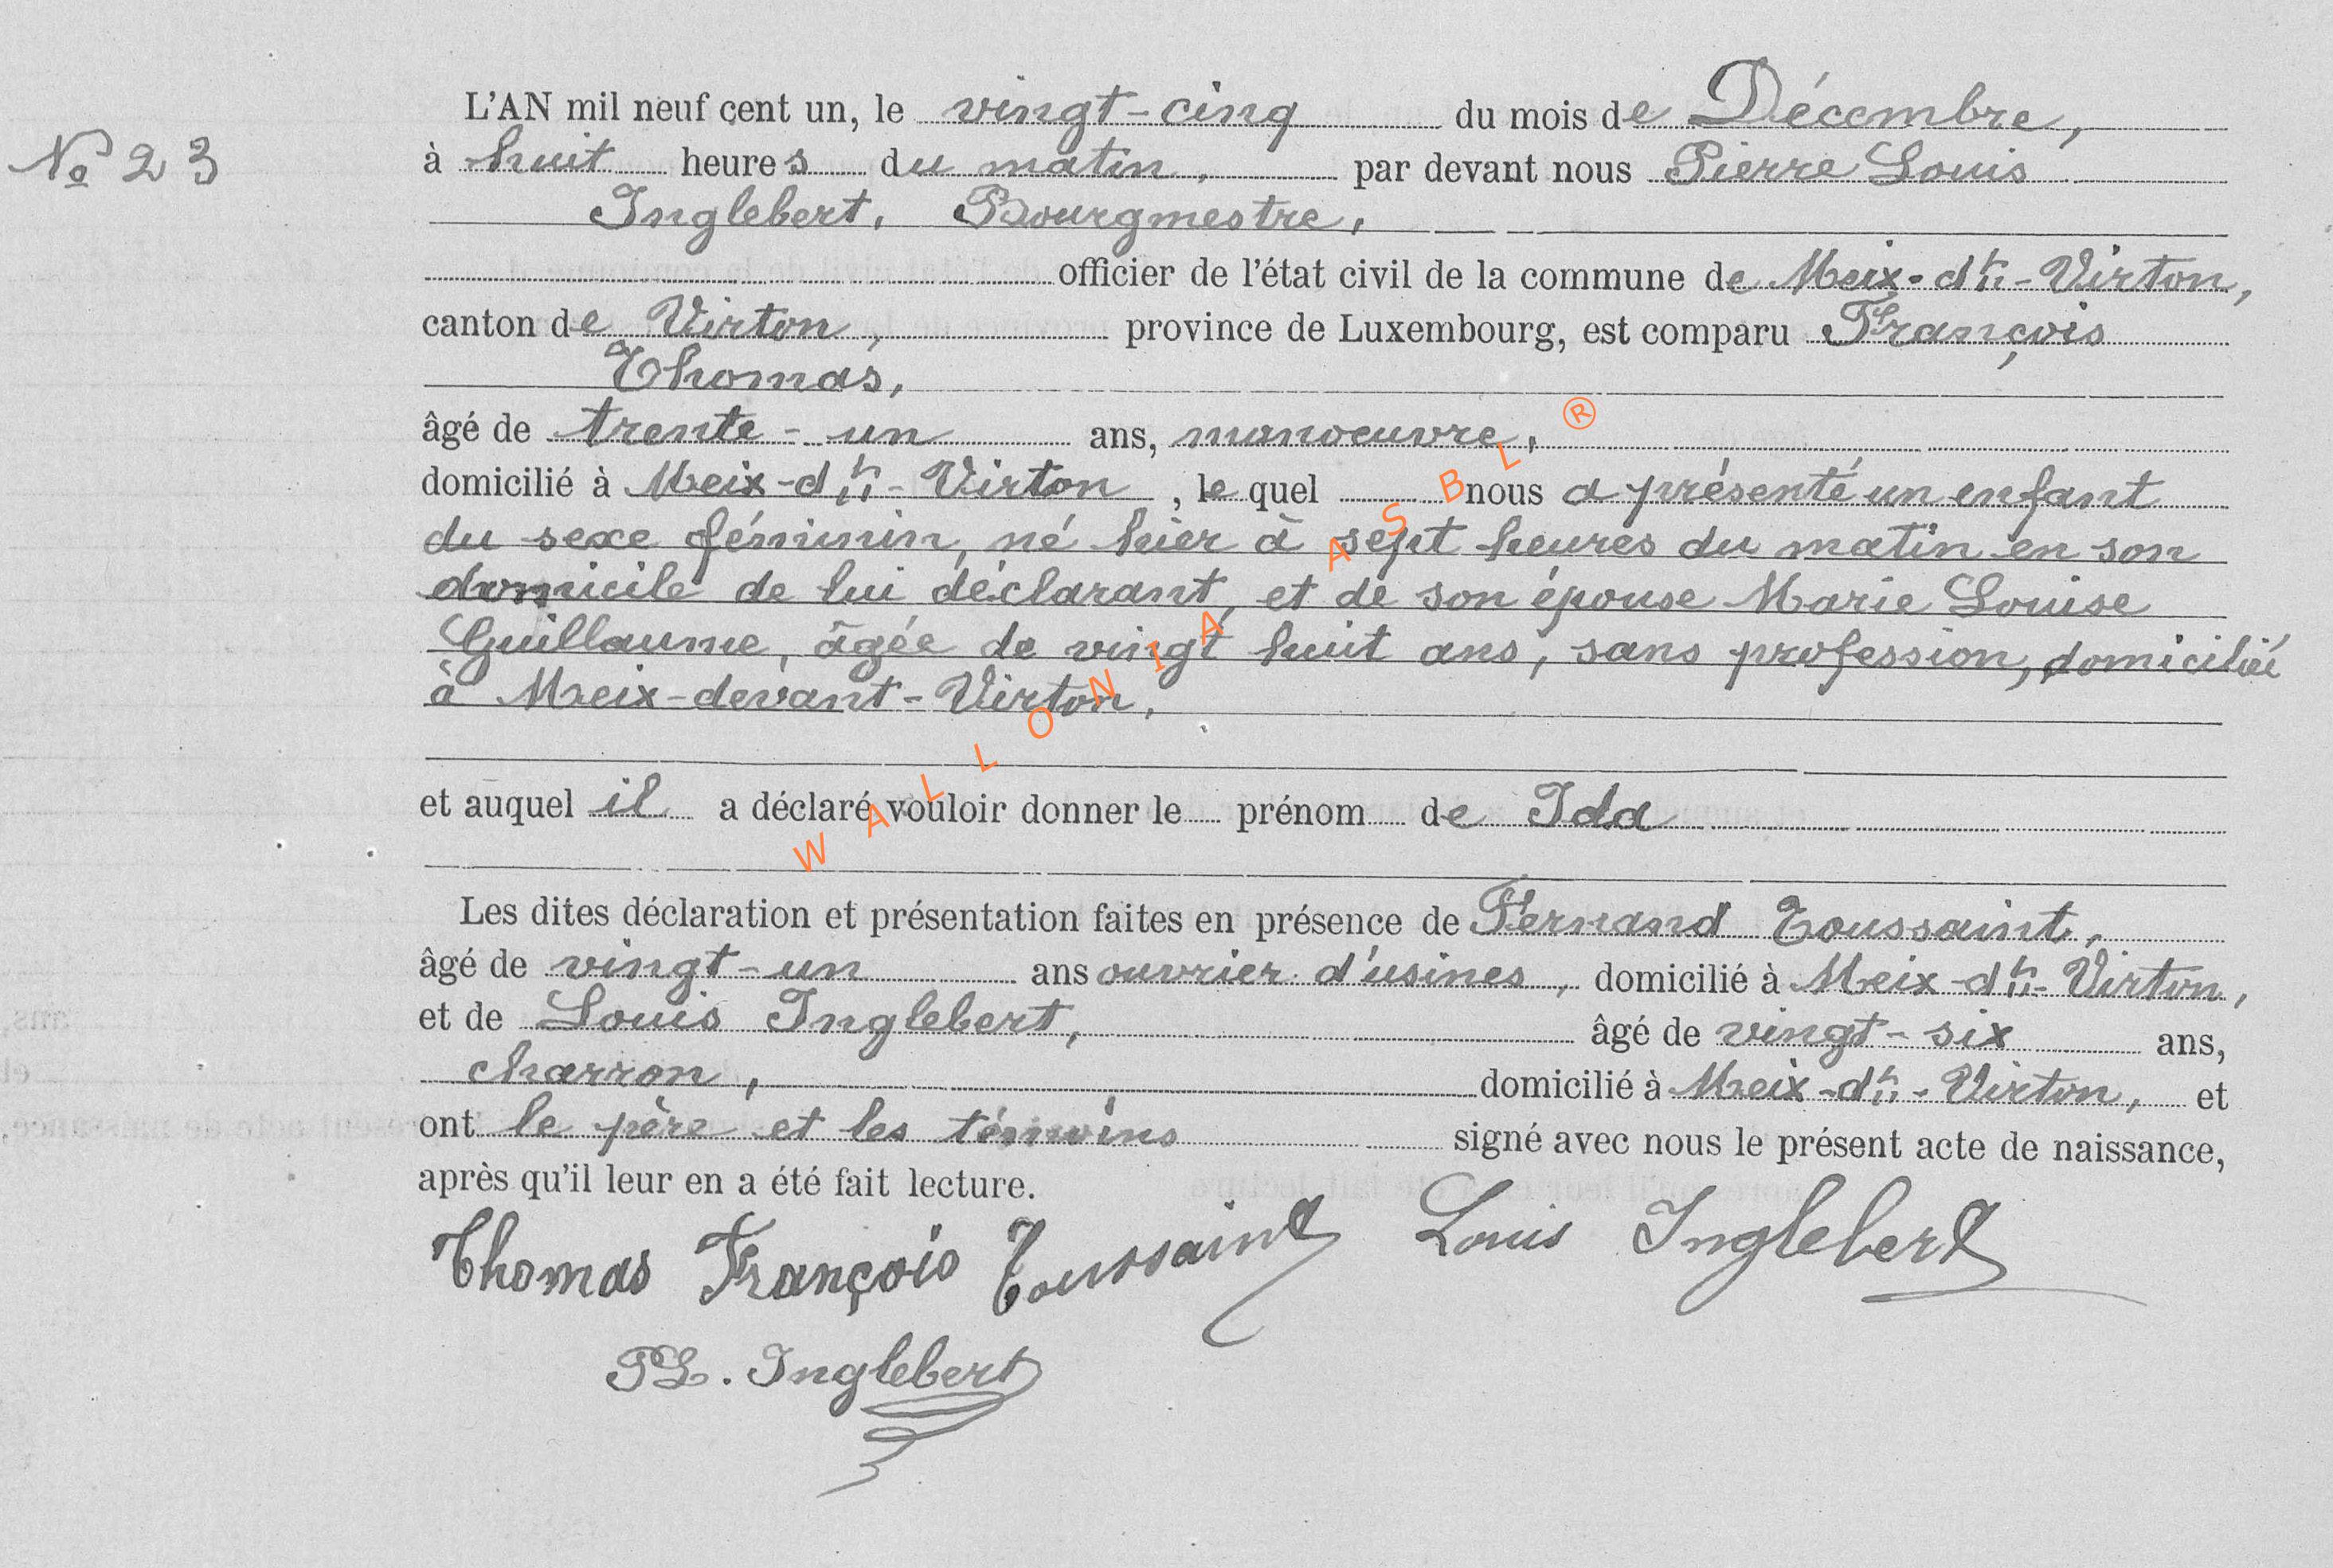 L'AN mil neuf cent un, le vingt-cinq du mois de Décembre,
N° 23
à huit heures du matin, par devant nous Pierre Louis
Inglebert, Bourgmestre,
officier de l'état civil de la commune de Meix-dt-Virton,
canton de Virton, province de Luxembourg, est comparu François
Thomas,
âgé de trente-un ans, manoeuvre,
domicilié à Meix-dt-Virton, le quel nous a présenté un enfant
du sexe féminin, né hier à sept heures du matin en son
domicile de lui déclarant, et de son épouse Marie Louise
Guillaume, âgée de vingt huit ans, sans profession, domiciliée
à Meix-devant-Virton.
et auquel il a déclaré vouloir donner le prénom de Ida
Les dites déclaration et présentation faites en présence de Fernand Toussaint,
âgé de vingt-un ans ouvrier d'usines, domicilié à Meix-dt-Virton,
et de Louis Inglebert, âgé de vingt-six ans,
charron, domicilié à Meix-dt-Virton, et
ont le père et les témoins signé avec nous le présent acte de naissance,
après qu'il leur en a été fait lecture.
Thomas François Toussaint Louis Inglebert
PL. Inglebert
WALLONIA ASBL ®